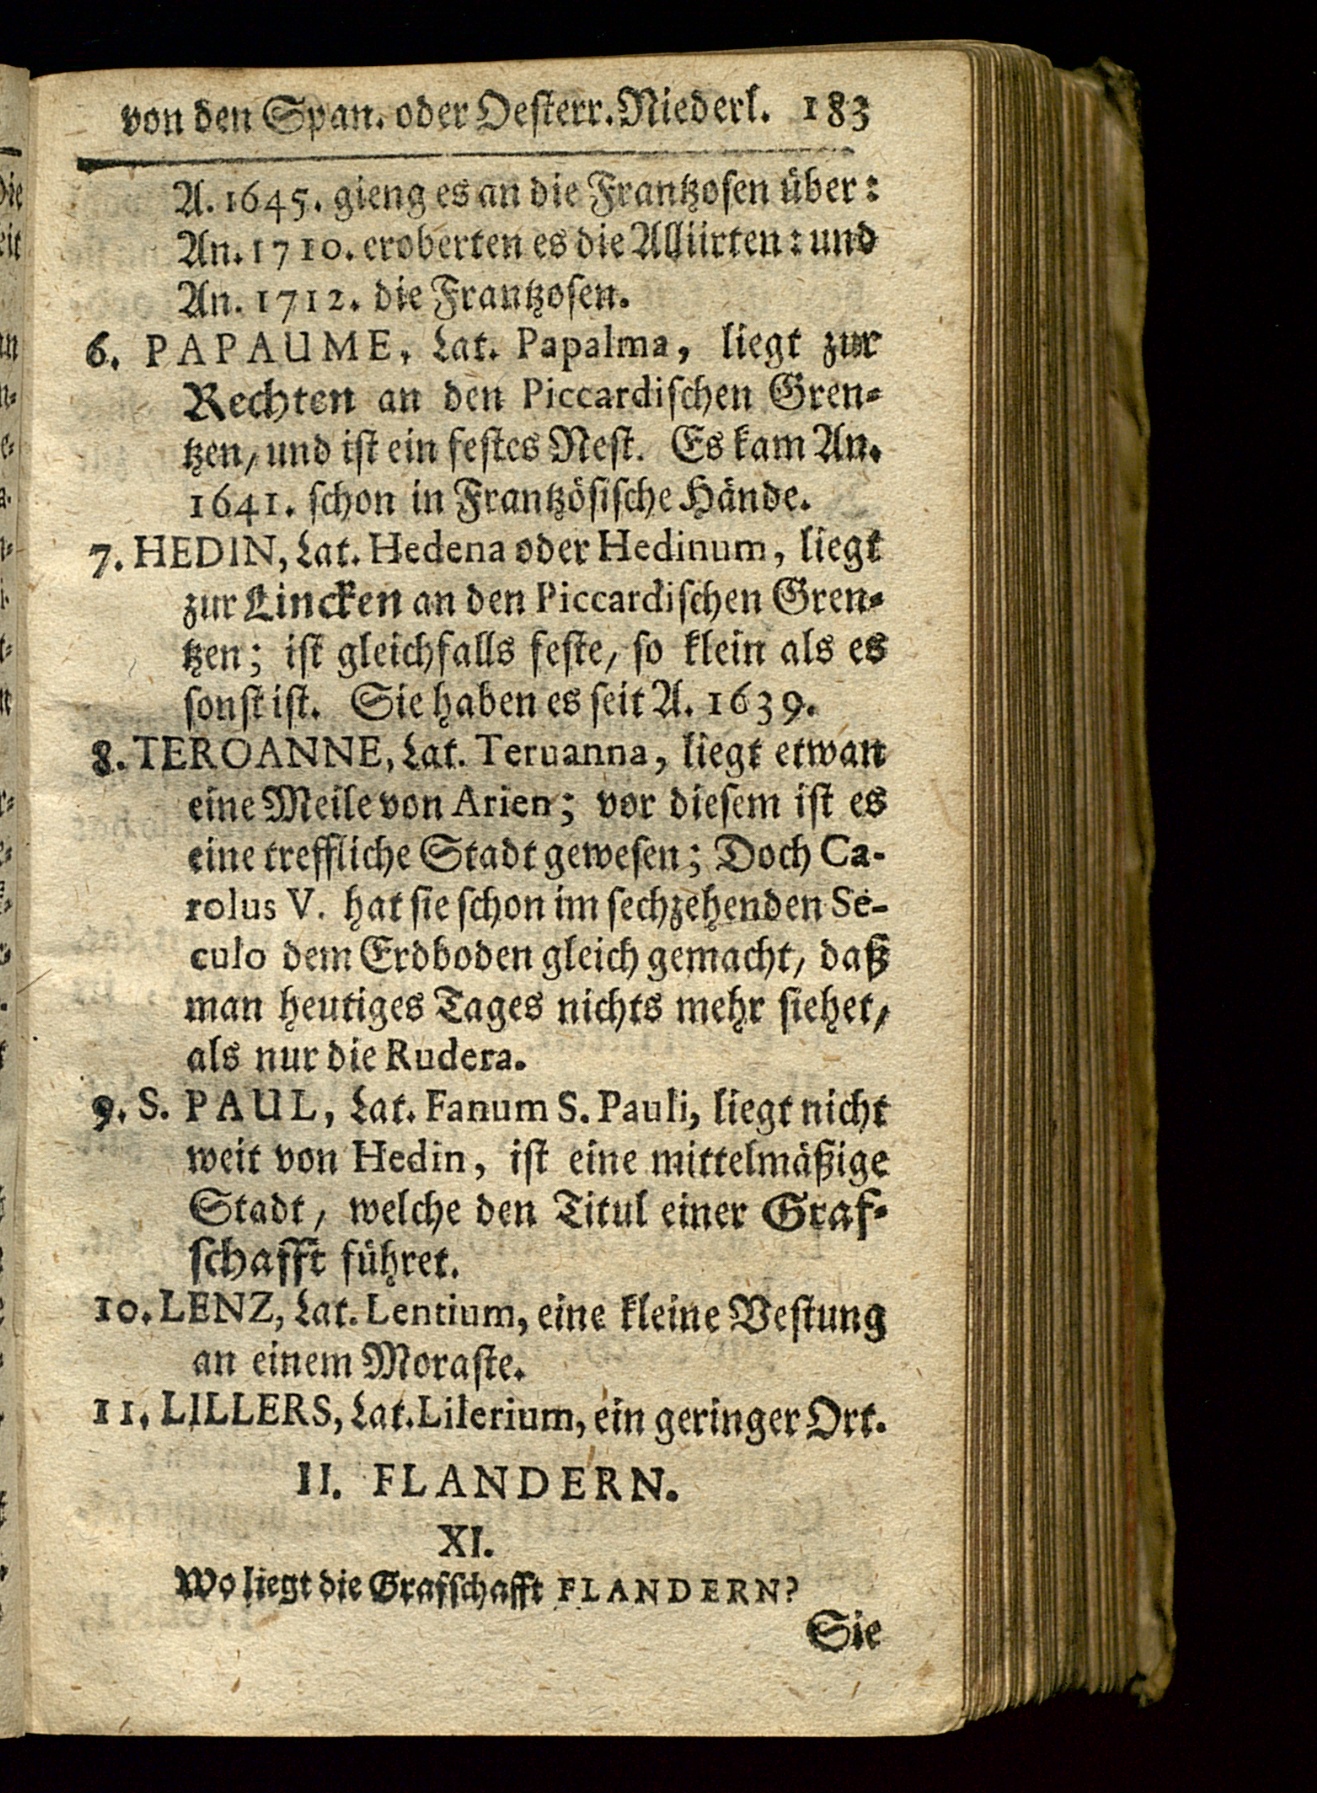 von den Span. oder Oesterr. Niederl. 183
A. 1645. gieng es an die Frantzosen über:
An. 1710. eroberten es die Alliirten: und
An. 1712. die Frantzosen.
6. PAPAUME, Lat. Papalma, liegt zur
Rechten an den Piccardischen Gren-
tzen, und ist ein festes Nest. Es kam An.
1641. schon in Frantzösische Hände.
7. HEDIN, Lat. Hedena oder Hedinum, liegt
zur Lincken an den Piccardischen Gren-
tzen; ist gleichfalls feste, so klein als es
sonst ist. Sie haben es seit A. 1639.
8. TEROANNE, Lat. Teruanna, liegt etwan
eine Meile von Arien; vor diesem ist es
eine treffliche Stadt gewesen; Doch Ca-
rolus V. hat sie schon im sechzehenden Se-
culo dem Erdboden gleich gemacht, daß
man heutiges Tages nichts mehr siehet,
als nur die Rudera.
9. S. PAUL, Lat. Fanum S. Pauli, liegt nicht
weit von Hedin, ist eine mittelmäßige
Stadt, welche den Titul einer Graf-
schafft führet.
10. LENZ, Lat. Lentium, eine kleine Vestung
an einem Moraste.
11. LILLERS, Lat. Lilerium, ein geringer Ort.
II. FLANDERN.
XI.
Wo liegt die Grafschafft FLANDERN?
Sie